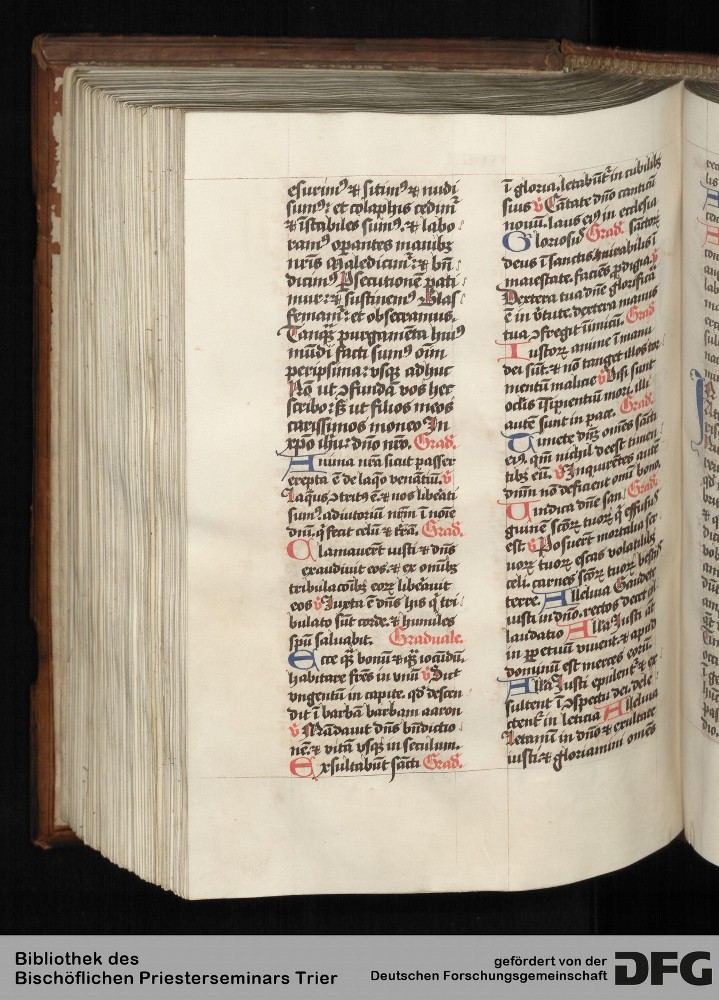 esurim⁹ ⁊ sitim⁹ ⁊ nudi
sum⁹: et colaphis cedim̃
⁊ ĩstabiles sum⁹. ⁊ labo
ram⁹ oꝑantes manibꝫ
nr̃is Maledicim̃: ⁊ bñ
dicim⁹ Psecutionē pati
mur: ⁊ sustinem⁹ Blas
femam̃: et obsecramus.
Tanqꝫ purgamēta hui⁹
mūdi facti sum⁹ oĩm
peripsima: usqꝫ adhuc
Nō ut ꝯfundā vos hec
scribo: sꝫ ut filios meos
carissimos moneo In
xp̄o ihū: dño nr̃o. Grad̃.
Anima nr̃a sicut passer
erepta ē de laqo venātiū. ℣
Laqus ꝯtrit⁹ ē. ⁊ nos libeati
sum⁹ adiutoriū nr̃m ĩ noĩe
dñi. q̃ fecit celū ⁊ tr̃ā. Grad̃.
Clamauer̃t iusti ⁊ dñs
exaudiuit eos. ⁊ ex omĩbꝫ
tribulacõibꝫ eoꝝ liberauit
eos ℣ Iuxta ē dñs his q̃ tri
bulato sũt corde. ⁊ humiles
spũ saluabit. Graduale.
Ecce qꝫ bonū ⁊ qꝫ iocūdū.
habitare fr̃es in unū ℣ Sicut
ungentū in capite. qd̃ descen
dit ĩ barbā barbam aaron
℣ Mādauit dñs bñdictio
nē. ⁊ vitā usqꝫ in seculum.
Exsultabūt sācti Grad̃.
ĩ gloria. letabūt̃ in cubilibꝫ
suis ℣ Cātate dño canticū
nouū. laus ei⁹ in ecclesia
Glorios⁹ Grad̃. sāctoꝝ
deus ĩ sanctis. mirabilis ĩ
maiestate. faciēs ꝓdigia. ℣
Dextera tua dñe glorificāt̃
ē in v̓tute. dextera manus
tua ꝯfregit inimicū. Grad̃
Iustoꝝ anime ĩ manu
dei sũt. ⁊ nō tanget illos tor
mentū malicie ℣ Visi sunt
oclīs ĩsipientiū mori. illi
autē sunt in pace. Grad̃.
Timete dñꝫ omēs sācti
ei⁹. qm̃ nichil deest timen
tibꝫ eū. ℣ Inquirētes autē
dñm nō deficient omĩ bono.
Vindica dñe san Grad̃.
guinē scõꝝ tuoꝝ q̃ effusus
est. ℣ Posuer̃t mortalia ser
uoꝝ tuoꝝ escas volatilibꝫ
celi. carnes scõꝝ tuoꝝ bestijs
terre. Alleluia Gaudete
iusti in dño. rectos decet ꝯ
laudatio Alla Iusti aūt
in ꝑpetuū viuent. ⁊ apud
dominū est merces eorū.
Alla Iusti epulent̃ ⁊ ex
sultent ĩ ꝯspectu dei. dele
ctent̃ in leticia Alleluia
Letamī in dño ⁊ exultate
iusti. ⁊ gloriamini omēs
Bibliothek des
Bischöflichen Priesterseminars Trier
gefördert von der
Deutschen Forschungsgemeinschaft
DFG